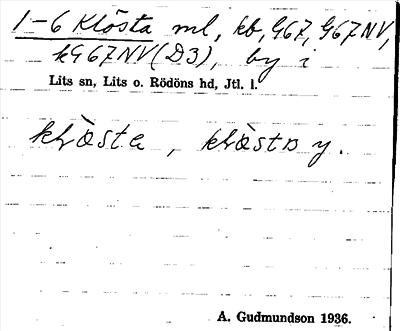 1-6 Klösta ml, kb, G67, G67NV,
kG67NV(D3), by i
Lits sn, Lits o. Rödöns hd, Jtl. l.
A. Gudmundson 1936.